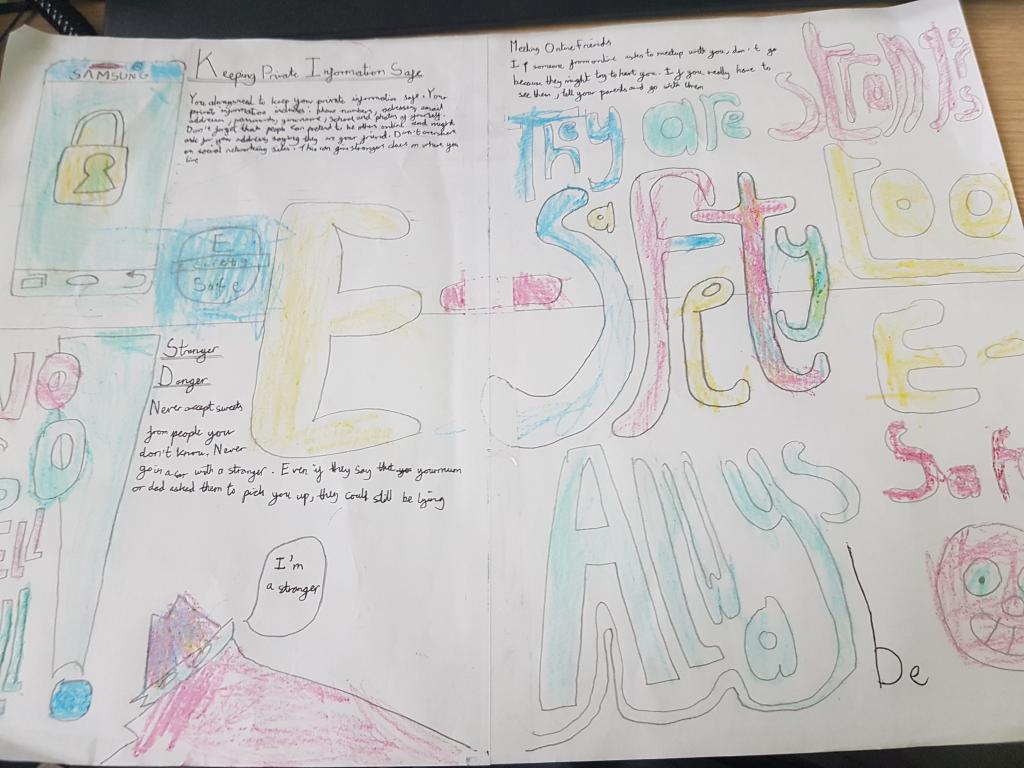 SAMSUNG
Keeping Private Information Safe
You always need to keep your private information safe. Your
private information includes: phone numbers, addresses, email
addresses, passwords, your name, school and photos of yourself.
Don't forget that people can pretend to be others online and might
ask for your address saying they are your friend. Don't overshare
on social networking sites. This can give strangers clues on where you
live
Meeting Online Friends
If someone from online asks to meetup with you, don't go
because they might try to hurt you. If you really have to
see them, tell your parents and go with them
They are
too
E
Safe
E-Safety
Stranger
Danger
Never accept sweets
from people you
don't know. Never
go in a car with a stranger. Even if they say your mum
or dad asked them to pick you up, they could still be lying
I'm
a stranger
Allways
be
E-
Saf
No
!